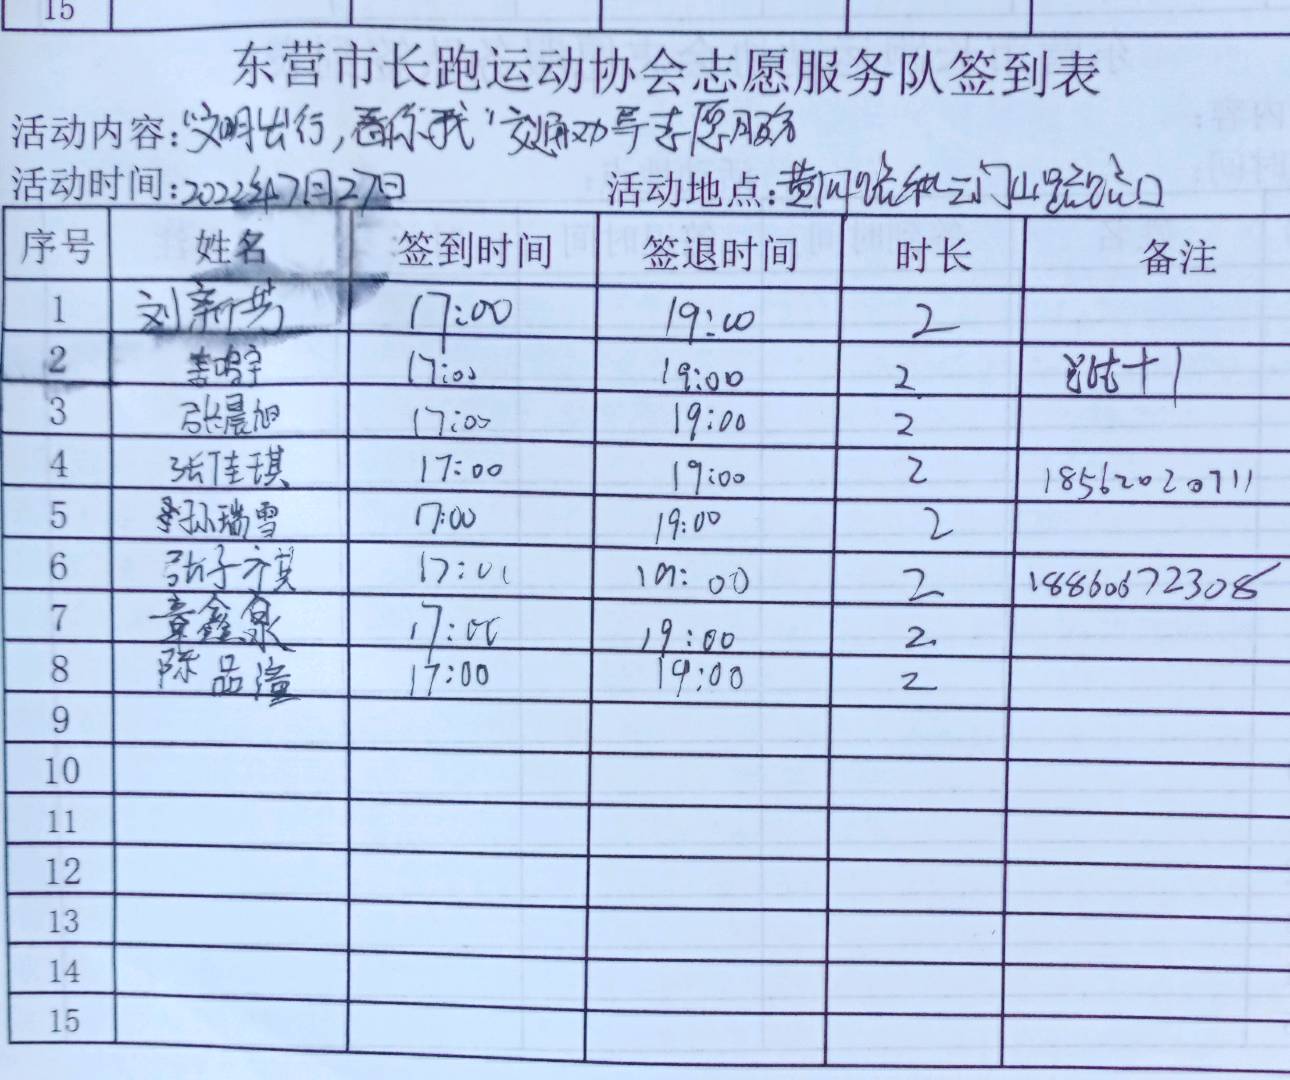 15
东营市长跑运动协会志愿服务队签到表
活动内容:"文明出行,看你我"交通劝导志愿服务
活动时间:2022年7月27日 活动地点:黄河路和云门山路路口
序号 姓名 签到时间 签退时间 时长 备注
1 刘新芳 17:00 19:00 2
2 李鸣宇 17:00 19:00 2
3 张晨旭 17:00 19:00 2
4 张佳琪 17:00 19:00 2 18562020711
5 孙瑞雪 17:00 19:00 2
6 张子 17:00 19:00 2
7 章鑫泉 17:00 19:00 2
8 陈品潼 17:00 19:00 2
9
10
11
12
13
14
15